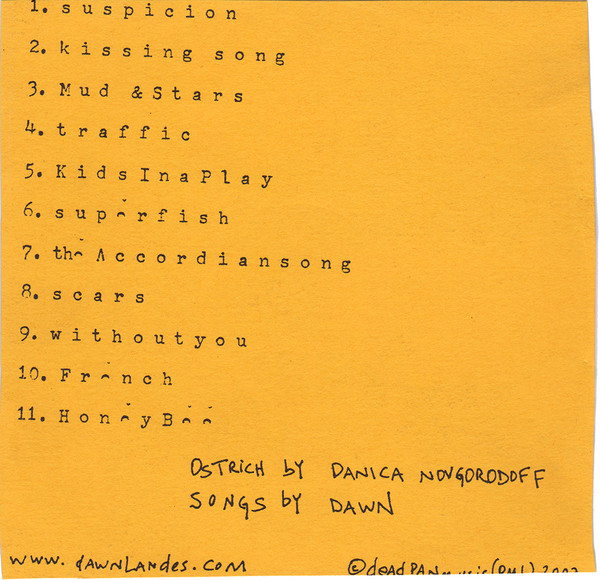 1. suspicion
2. kissing song
3. Mud &Stars
4. traffic
5. KidsInaPlay
6. superfish
7. the Accordiansong
8. scars
9. withoutyou
10. French
11. HoneyBee
OSTRICH by DANICA NOVGORODOFF
SONGS by DAWN
www.dawnlandes.com
©deadPANmusic(BMI)